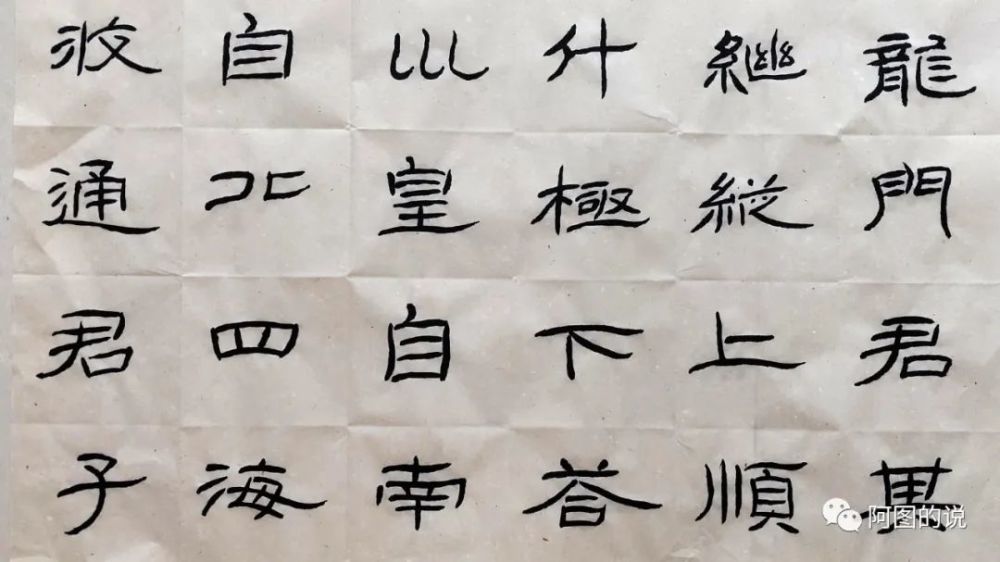 龍門君其
繼縱上順
斗極下荅
巛皇自南
自北四海
攸通君子
阿图的说